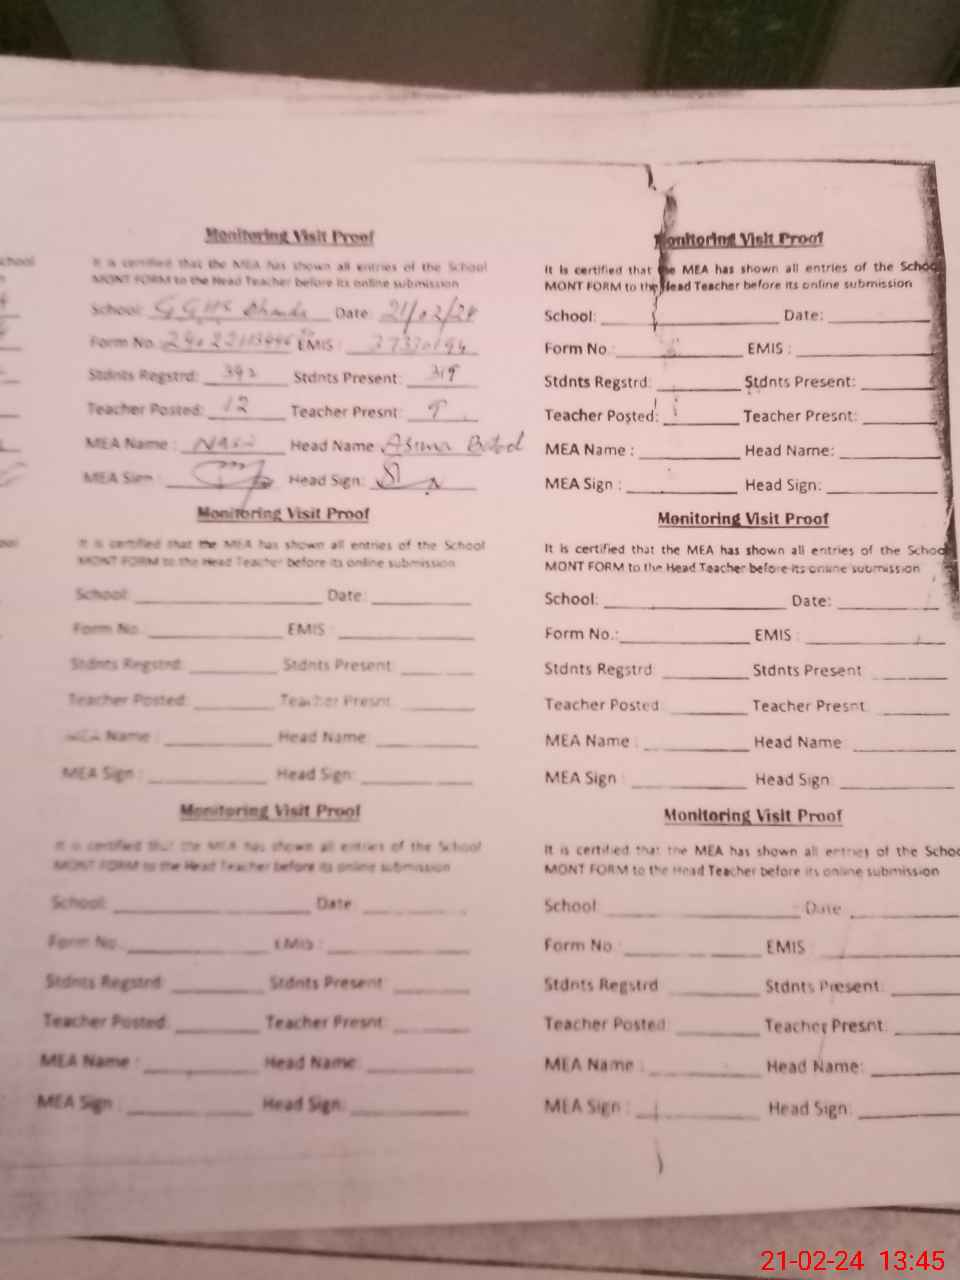 Monitoring Visit Proof
It is certified that the MEA has shown all entries of the School
MONT FORM to the Head Teacher before its online submission
School: GGHS Date: 21/02/24
Form No. EMIS : 37330194
Stdnts Regstrd: 392 Stdnts Present: 319
Teacher Posted: 12 Teacher Presnt: 9
MEA Name : Head Name: Asma
MEA Sign : Head Sign:
Monitoring Visit Proof
It is certified that the MEA has shown all entries of the School
MONT FORM to the Head Teacher before its online submission
School: Date:
Form No. EMIS :
Stdnts Regstrd: Stdnts Present:
Teacher Posted: Teacher Presnt:
MEA Name : Head Name:
MEA Sign : Head Sign:
Monitoring Visit Proof
It is certified that the MEA has shown all entries of the School
MONT FORM to the Head Teacher before its online submission
School: Date
Form No. EMIS :
Stdnts Regstrd: Stdnts Present:
Teacher Posted: Teacher Presnt:
MEA Name : Head Name:
MEA Sign : Head Sign:
Monitoring Visit Proof
It is certified that the MEA has shown all entries of the School
MONT FORM to the Head Teacher before its online submission
School: Date:
Form No.: EMIS :
Stdnts Regstrd: Stdnts Present:
Teacher Posted: Teacher Presnt:
MEA Name : Head Name:
MEA Sign : Head Sign:
Monitoring Visit Proof
It is certified that the MEA has shown all entries of the School
MONT FORM to the Head Teacher before its online submission
School: Date:
Form No.: EMIS :
Stdnts Regstrd: Stdnts Present
Teacher Posted Teacher Presnt:
MEA Name : Head Name
MEA Sign : Head Sign:
Monitoring Visit Proof
It is certified that the MEA has shown all entries of the Schoo
MONT FORM to the Head Teacher before its online submission
School: Date
Form No : EMIS
Stdnts Regstrd Stdnts Present:
Teacher Posted: Teacher Presnt:
MEA Name : Head Name:
MEA Sign : Head Sign:
21-02-24 13:45